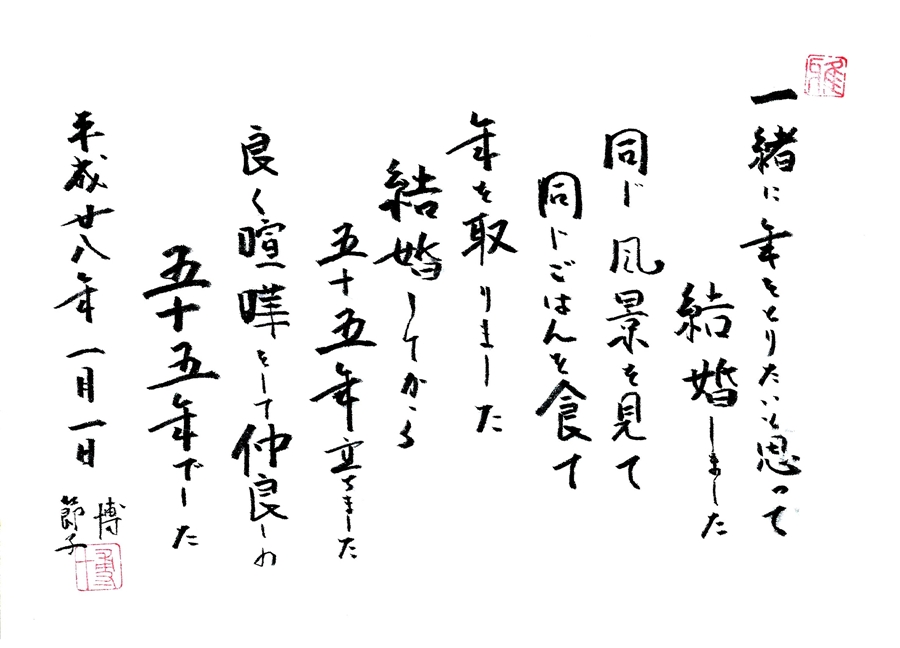 一緒に年をとりたいと思って
結婚しました
同じ風景を見て
同じごはんを食て
年を取りました
結婚してから
五十五年立ちました
良く喧嘩をして仲良しの
五十五年でした
平成廿八年一月一日
博
節子